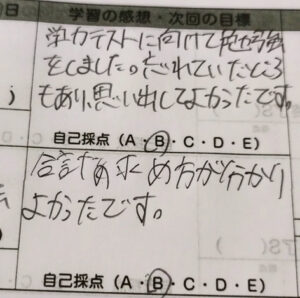 日
学習の感想・次回の目標
学力テストに向けて勉強
をしました。忘れていたところ
もあり、思い出してよかったです。
自己採点（A・B・C・D・E）
求め方が分かり
よかったです。
自己採点（A・B・C・D・E）